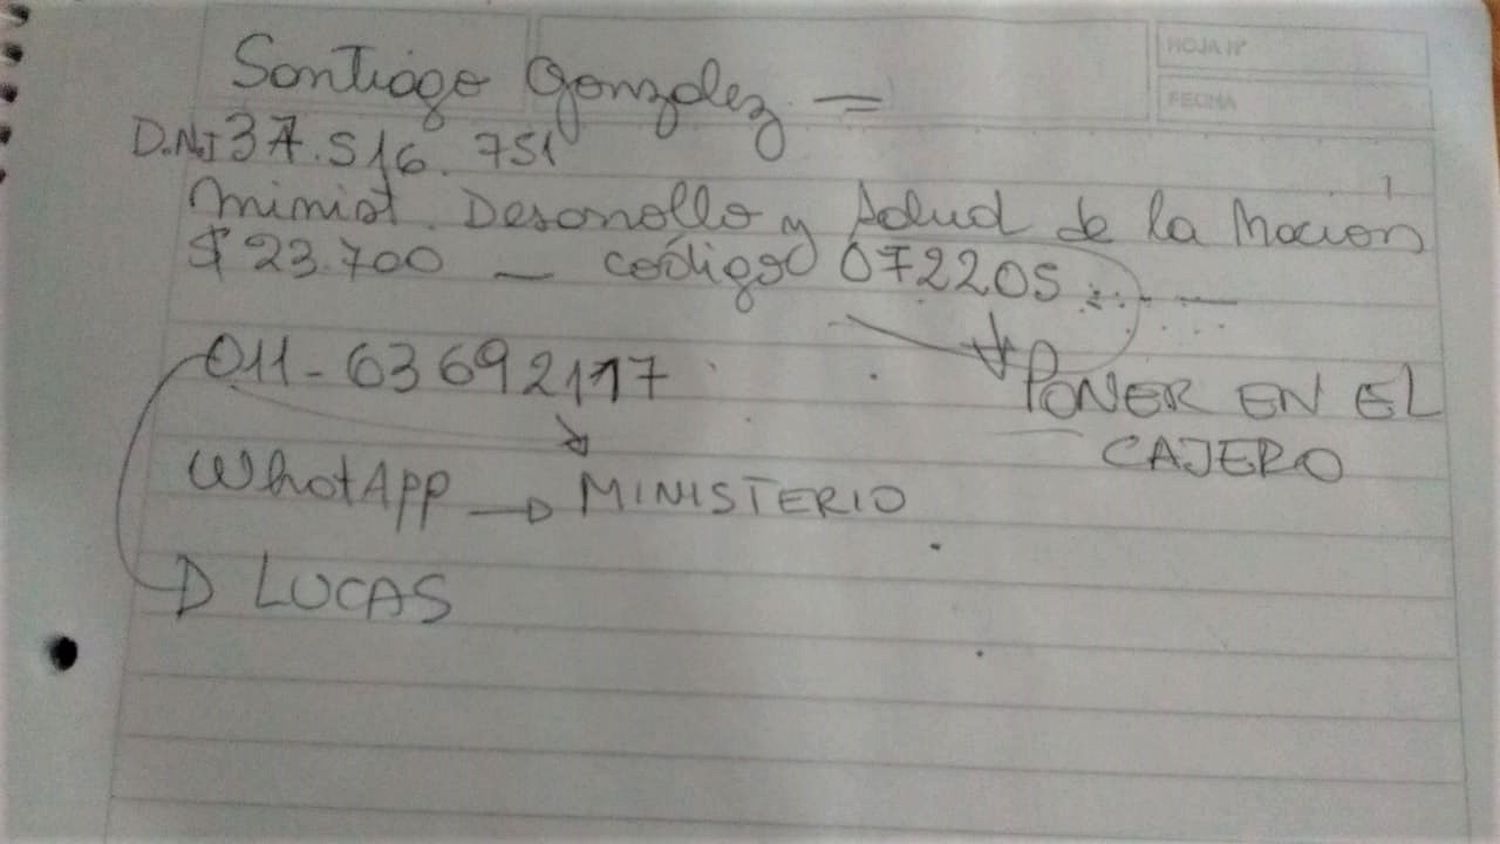 HOJA Nº
FECHA
Santiago Gonzalez =
D.N.I 37.516.751
Minist. Desarrollo y Salud de la Nación
$ 23.700 — código 072205
011-63692117
PONER EN EL
CAJERO
WhatApp → MINISTERIO
LUCAS